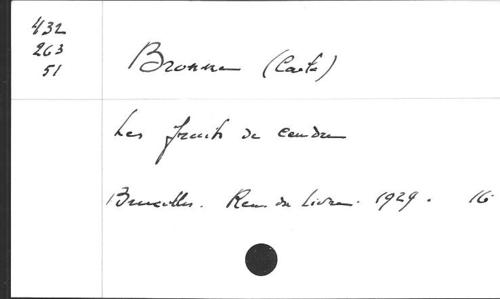 432
263
51
Bronne (Carlo)
Les fruits de cendre
Bruxelles. Ren. du Livre. 1929. 16